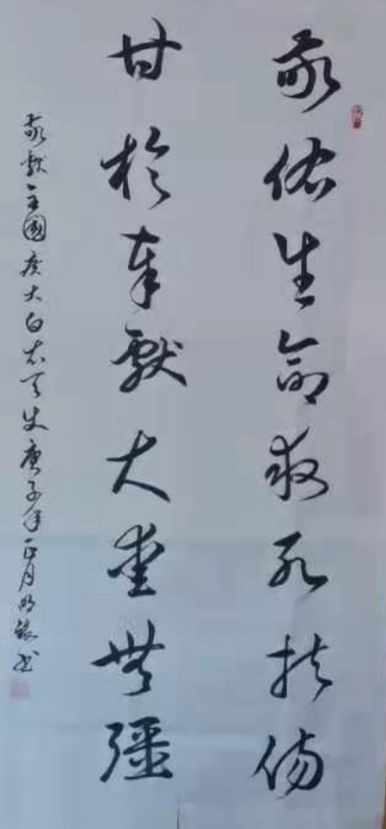 敬佑生命救死扶伤
甘於奉獻大爱無疆
敬献全國广大白衣天使庚子年正月明銀书